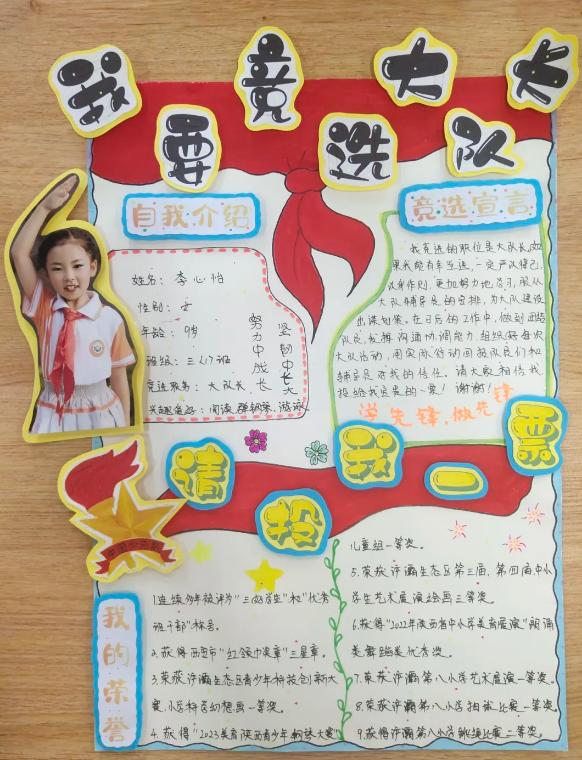 我要竞选大队长
自我介绍
姓名：李心怡
性别：女
年龄：9岁
班级：三(1)班
竞选职务：大队长
兴趣爱好：阅读、弹钢琴、游泳
努力中成长
坚韧中长大
竞选宣言
我竞选的职位是大队长,如
果我能有幸当选,一定严以律己,
以身作则,更加努力地学习,服从
大队辅导员的安排,为大队建设
出谋划策。在日后的工作中,做到团结
队员,发挥沟通协调能力,组织好每次
大队活动,用实际行动回报队员们和
辅导员对我的信任。请大家相信我
投给我宝贵的一票！谢谢！
学先锋,做先锋
请投我一票
我的荣誉
1.连续多年被评为“三好学生”和“优秀
班干部”称号。
2.获得西安市“红领巾奖章”三星章。
3.荣获浐灞生态区青少年科技创新大
赛,小学科学幻想画一等奖。
4.获得“2023美育陕西青少年钢琴大赛”
儿童组一等奖。
5.荣获浐灞生态区第三届、第四届中小
学生艺术展演绘画三等奖。
6.获得“2022年陕西省中小学美育展演”朗诵
类舞蹈类优秀奖。
7.荣获浐灞第八小学艺术展演一等奖。
8.荣获浐灞第八小学独试比赛一等奖
9.获得浐灞第八小学跳绳比赛二等奖。